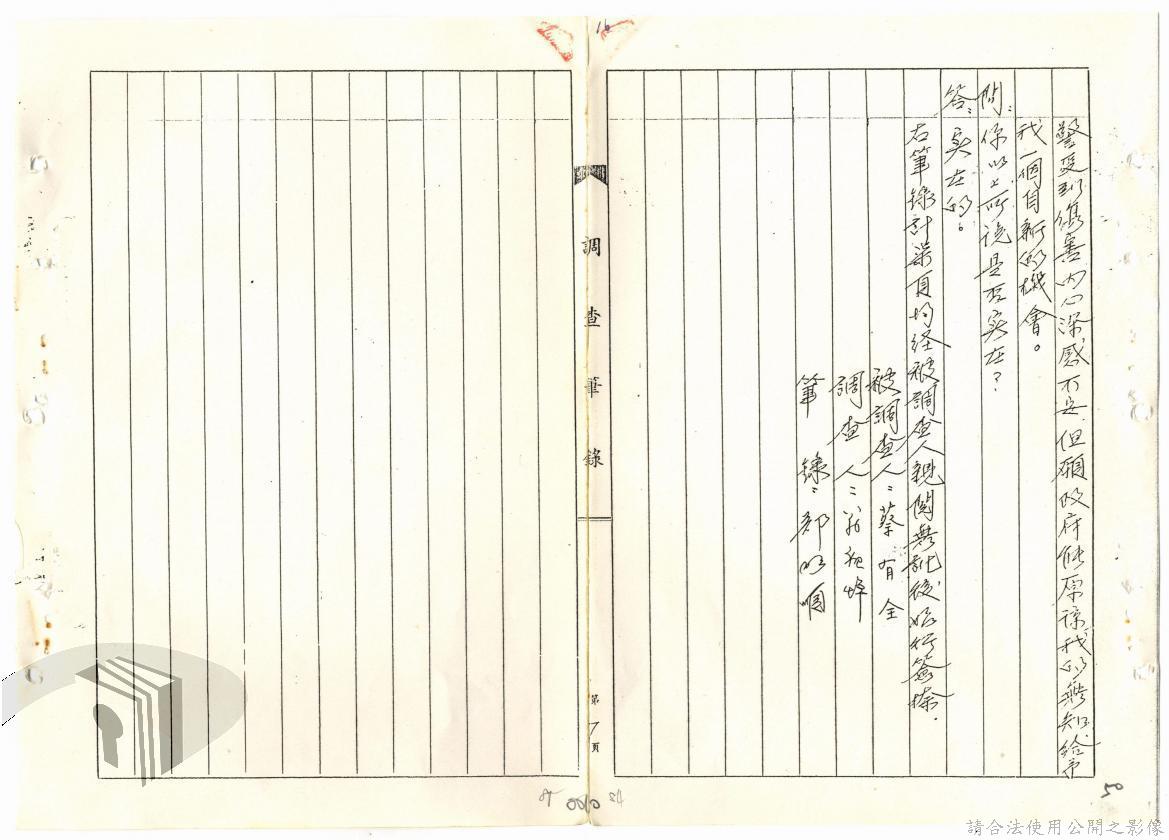 警受到傷害內心深感不安，但願政府能原諒我的無知給予
我一個自新的機會。
問：你以上所說是否实在？
答：实在的。
右筆錄計柒頁均経被調查人親閱無訛後始行簽捺.
被調查人：蔡有全
調查人：
筆錄：
調查筆錄
第7頁
16
50
請合法使用公開之影像